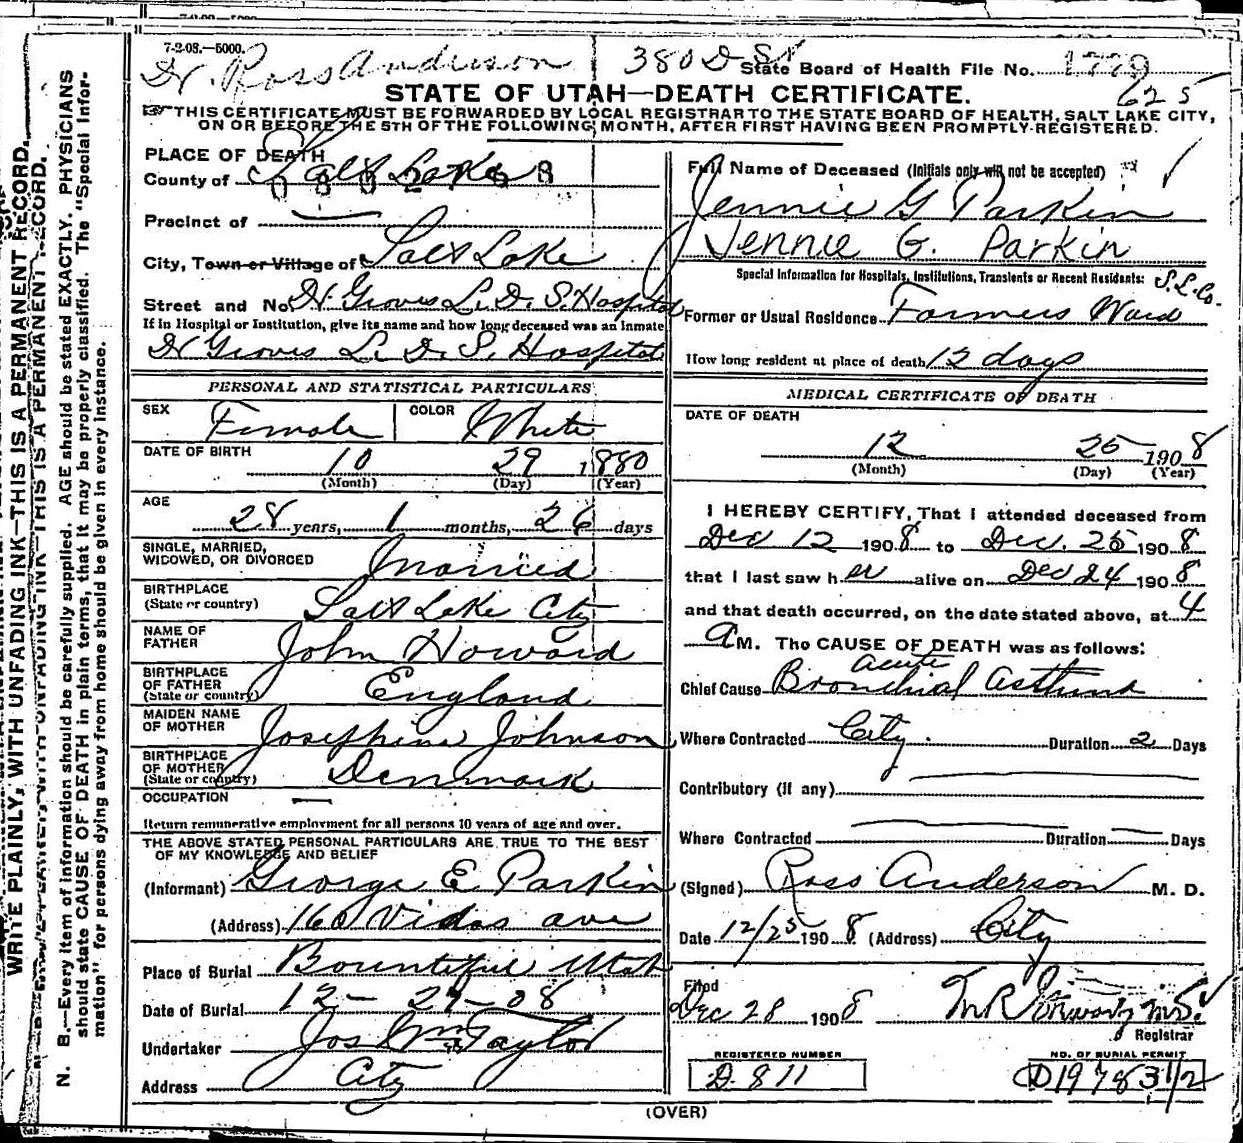 7-2-08.—5000.
Dr. Ross Anderson 380 D St
State Board of Health File No. 1779
625
STATE OF UTAH—DEATH CERTIFICATE.
THIS CERTIFICATE MUST BE FORWARDED BY LOCAL REGISTRAR TO THE STATE BOARD OF HEALTH, SALT LAKE CITY,
ON OR BEFORE THE 5TH OF THE FOLLOWING MONTH, AFTER FIRST HAVING BEEN PROMPTLY REGISTERED.
WRITE PLAINLY, WITH UNFADING INK—THIS IS A PERMANENT RECORD.
N. B.—Every item of information should be carefully supplied. AGE should be stated EXACTLY. PHYSICIANS
should state CAUSE OF DEATH in plain terms, that it may be properly classified. The "Special Infor-
mation" for persons dying away from home should be given in every instance.
PLACE OF DEATH
County of Salt Lake
Precinct of
City, Town or Village of Salt Lake
Street and No. Dr. Groves L. D. S. Hospital
If in Hospital or Institution, give its name and how long deceased was an inmate
Dr Groves L. D. S. Hospital
PERSONAL AND STATISTICAL PARTICULARS
SEX Female COLOR White
DATE OF BIRTH 10 29 1880
(Month) (Day) (Year)
AGE 28 years, 1 months, 26 days
SINGLE, MARRIED,
WIDOWED, OR DIVORCED Married
BIRTHPLACE
(State or country) Salt Lake City
NAME OF
FATHER John Howard
BIRTHPLACE
OF FATHER
(State or country) England
MAIDEN NAME
OF MOTHER Josephine Johnson
BIRTHPLACE
OF MOTHER
(State or country) Denmark
OCCUPATION —
Return remunerative employment for all persons 10 years of age and over.
THE ABOVE STATED PERSONAL PARTICULARS ARE TRUE TO THE BEST
OF MY KNOWLEDGE AND BELIEF
(Informant) George E Parkin
(Address) 160 Vidas ave
Place of Burial Bountiful Utah
Date of Burial 12—27—08
Undertaker Jos Wm Taylor
Address City
Full Name of Deceased (Initials only will not be accepted)
Jennie G Parkin
Jennie G. Parkin
Special Information for Hospitals, Institutions, Transients or Recent Residents: S. L. Co.
Former or Usual Residence Farmers Ward
How long resident at place of death 12 days
MEDICAL CERTIFICATE OF DEATH
DATE OF DEATH
12 25 1908
(Month) (Day) (Year)
I HEREBY CERTIFY, That I attended deceased from
Dec 12 1908 to Dec. 25 1908
that I last saw her alive on Dec 24 1908
and that death occurred, on the date stated above, at 4
a M. The CAUSE OF DEATH was as follows:
acute
Chief Cause Bronchial Asthma
Where Contracted City. Duration 2 Days
Contributory (if any)
Where Contracted — Duration — Days
(Signed) Ross Anderson M. D.
Date 12/25 1908 (Address) City
Filed
Dec 28 1908
Registrar
REGISTERED NUMBER
D. 811
NO. OF BURIAL PERMIT
D19783 1/2
(OVER)